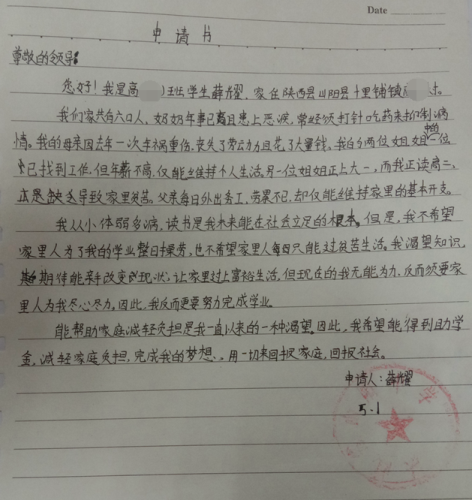 Date
申请书
尊敬的领导:
您好!我是高 班学生薛耀,家在陕西县山阳县十里铺镇 村。
我们家共有六口人,奶奶年事已高且患上恶疾,常经须打针吃药来抑制病
情。我的母亲因去年一次车祸重伤,丧失了劳动力且花了大量钱。我的两位姐姐一位
已找到工作,但年薪不高,仅能维持个人生活,另一位姐姐正上大一,而我正读高三,
缺乏导致家里贫苦。父亲每日外出务工,劳累不已,却仅能维持家里的基本开支。
我从小体弱多病,读书是我未来能在社会立足的根本。但是,我不希望
家里人为了我的学业整日操劳,也不希望家里人每日只能过贫苦生活。我渴望知识,
期待能来改变现状,让家里过上富裕生活。但现在的我无能为力,反而须要家
里人为我尽心尽力。因此,我反而更要努力完成学业。
能帮助家庭减轻负担是我一直以来的一种渴望。因此,我希望能得到助学
金,减轻家庭负担,完成我的梦想,用一切来回报家庭,回报社会。
申请人:薛耀
5.1